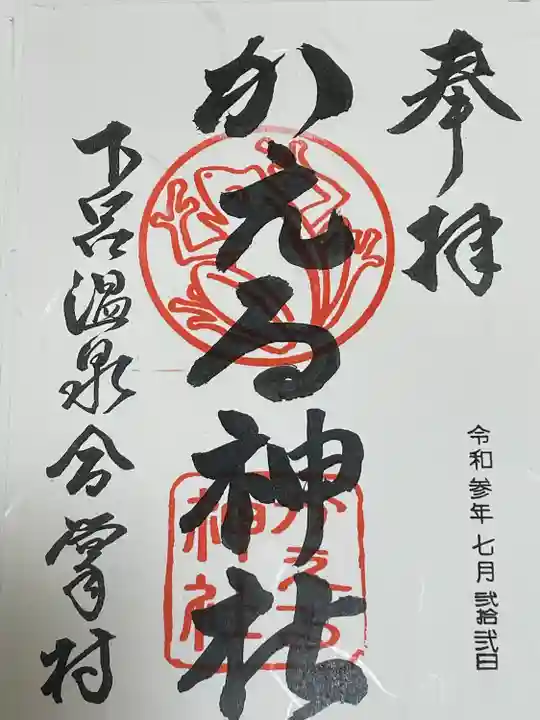 奉拝
かえる神社
かえる
神社
下呂温泉合掌村
令和参年七月弐拾弐日